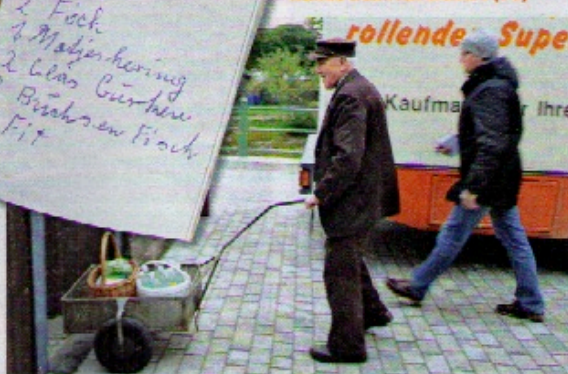 2 Fisch
1 Matjeshering
2 Glas Gurken
Büchsen Fisch
Fit
rollende Supe
Kaufma r Ihre